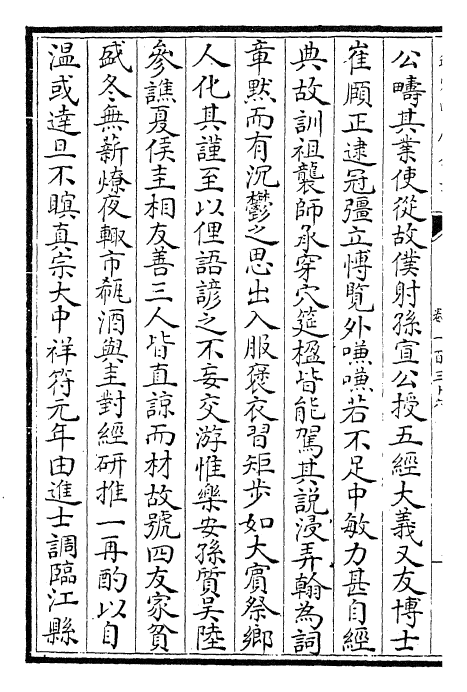 公疇其業使從故僕射孫宣公授五經大義又友博士
崔頤正逮冠彊立愽覧外嗛嗛若不足中敏力甚自經
典故訓祖襲師承穿穴筵楹皆能駕其說浸弄翰為詞
章默而有沉鬱之思出入服褒衣習矩步如大賓祭鄉
人化其謹至以俚語諺之不妄交游惟樂安孫質吳陸
參譙夏侯圭相友善三人皆直諒而材故號四友家貧
盛冬無薪燎夜輙市瓻酒與圭對經研推一再酌以自
温或達旦不瞑真宗大中祥符元年由進士調臨江縣
卷一百三十六